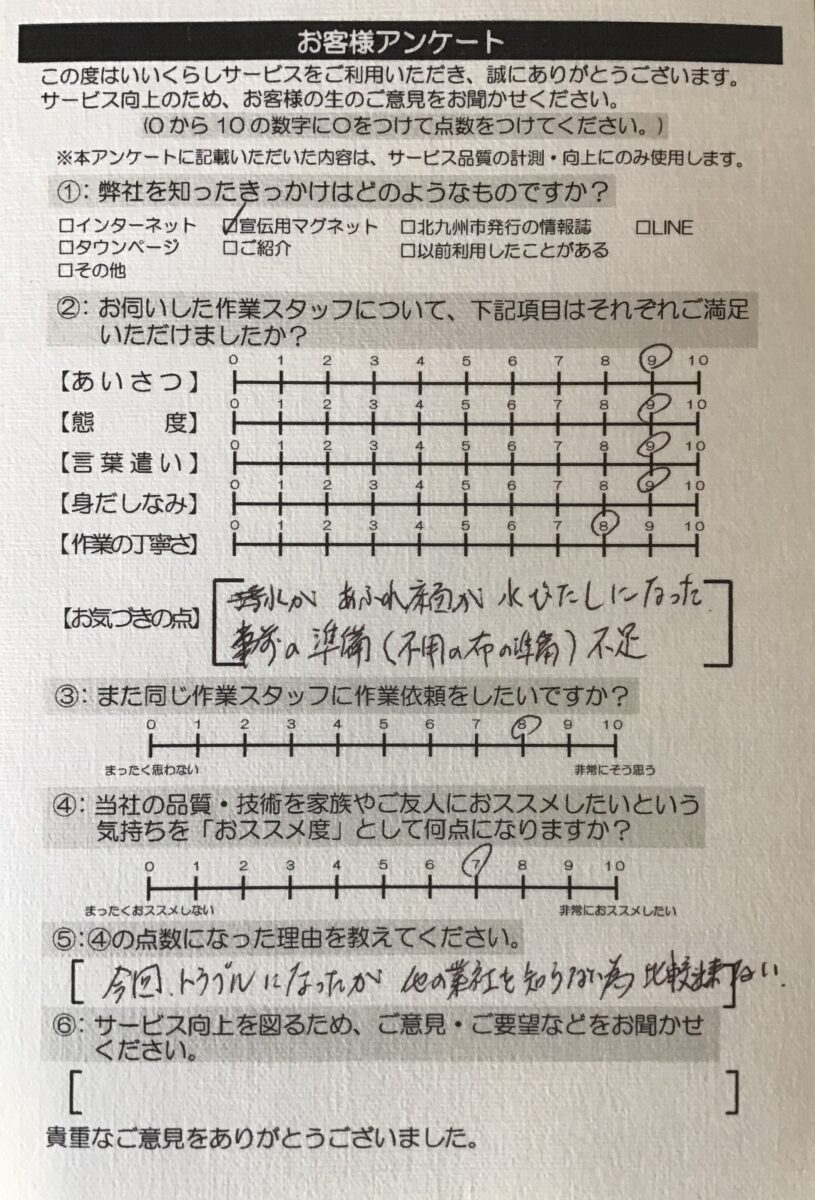 お客様アンケート
この度はいいくらしサービスをご利用いただき、誠にありがとうございます。
サービス向上のため、お客様の生のご意見をお聞かせください。
(0から10の数字に○をつけて点数をつけてください。)
※本アンケートに記載いただいた内容は、サービス品質の計測・向上にのみ使用します。
①:弊社を知ったきっかけはどのようなものですか?
□インターネット ☑宣伝用マグネット □北九州市発行の情報誌 □LINE
□タウンページ □ご紹介 □以前利用したことがある
□その他
②:お伺いした作業スタッフについて、下記項目はそれぞれご満足
いただけましたか?
0 1 2 3 4 5 6 7 8 9 10
【あいさつ】
0 1 2 3 4 5 6 7 8 9 10
【態度】
0 1 2 3 4 5 6 7 8 9 10
【言葉遣い】
0 1 2 3 4 5 6 7 8 9 10
【身だしなみ】
0 1 2 3 4 5 6 7 8 9 10
【作業の丁寧さ】
【お気づきの点】
水が あふれ床面が 水びたしになった
事前の準備(不用の布の準備)不足
③:また同じ作業スタッフに作業依頼をしたいですか?
0 1 2 3 4 5 6 7 8 9 10
まったく思わない 非常にそう思う
④:当社の品質・技術を家族やご友人におススメしたいという
気持ちを「おススメ度」として何点になりますか?
0 1 2 3 4 5 6 7 8 9 10
まったくおススメしない 非常におススメしたい
⑤:④の点数になった理由を教えてください。
今回、トラブルになったが 他の業社も知らない為 比較出来ない.
⑥:サービス向上を図るため、ご意見・ご要望などをお聞かせ
ください。
貴重なご意見をありがとうございました。